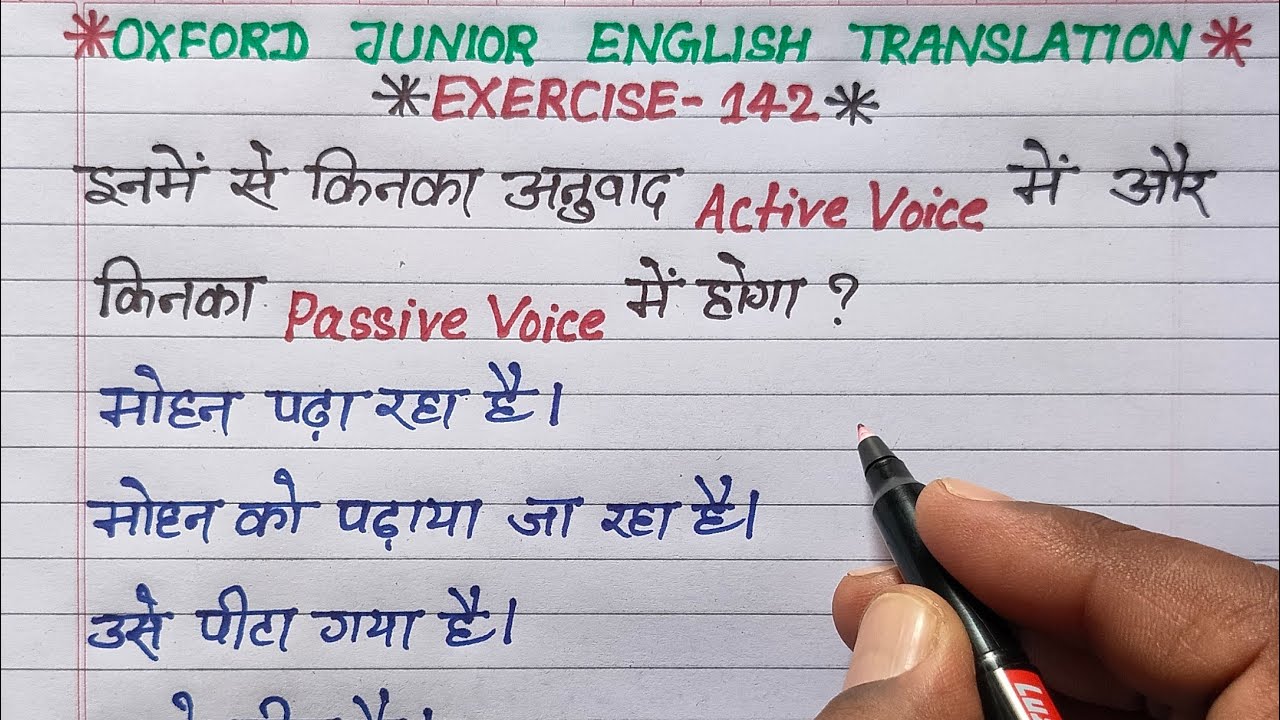 *OXFORD JUNIOR ENGLISH TRANSLATION*
*EXERCISE-142*
इनमें से किनका अनुवाद Active Voice में और
किनका Passive Voice में होगा ?
मोहन पढ़ा रहा है।
मोहन को पढ़ाया जा रहा है।
उसे पीटा गया है।